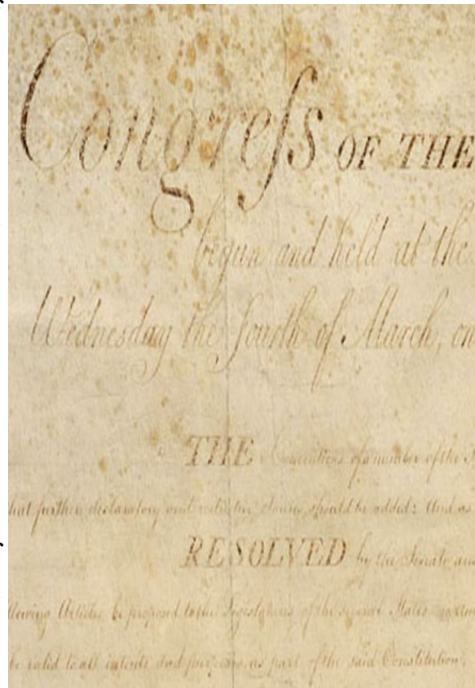 Congreſs OF THE
begun and held at the
Wednesday the fourth of March, on
THE Conventions of a number of the S
hat further declaratory and restrictive clauses should be added: And as
RESOLVED by the Senate an
llowing Articles be proposed to the Legislatures of the several States
be valid to all intents and purposes, as part of the said Constitution